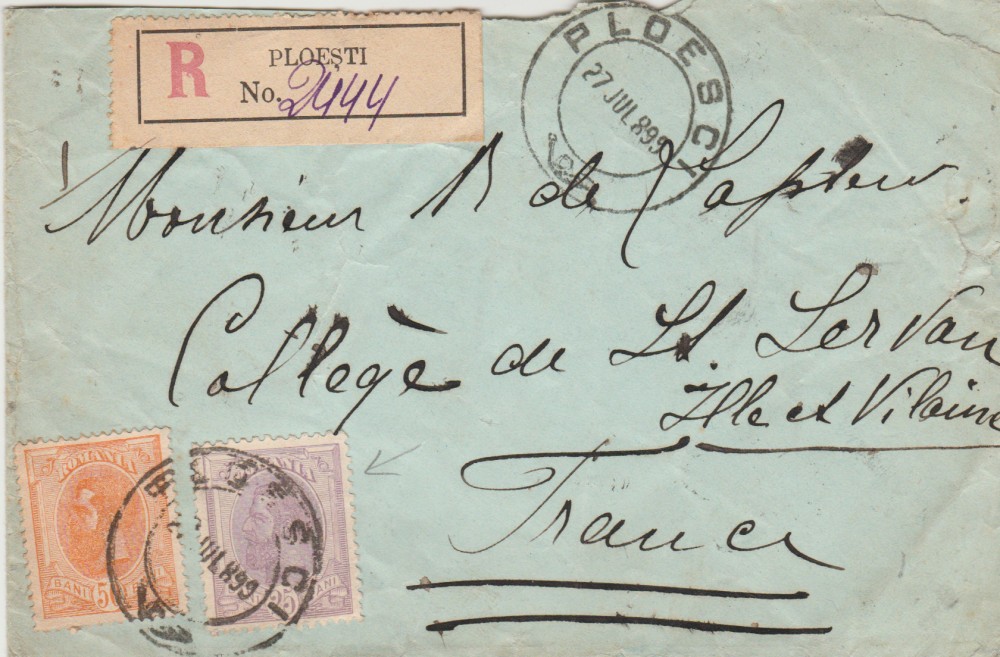 R PLOEȘTI
No. 2444
PLOESCI
27 JUL 899
Monsieur R de
Collège de St. Servan
Ille et Vilaine
France
ROMANIA
BANI 50 BANI
ROMANIA
25 BANI
PLOESCI
27 JUL 899